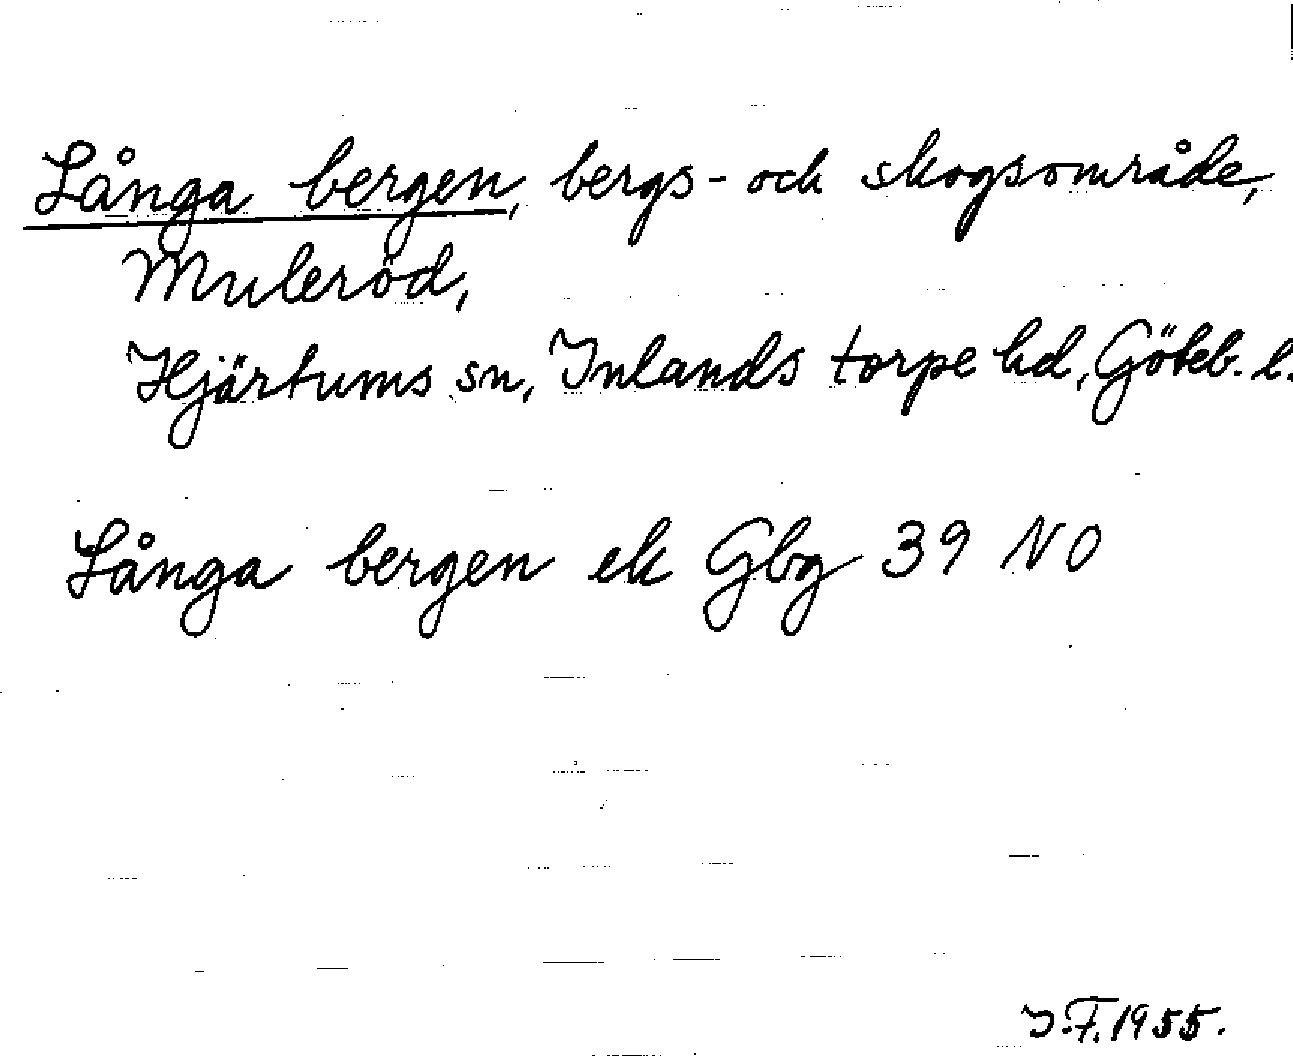 Långa bergen, bergs- och skogsområde,
Muleröd,
Hjärtums sn, Inlands torpe hd, Göteb. l.
Långa bergen ek Gbg 39 NO
J.F. 1955.